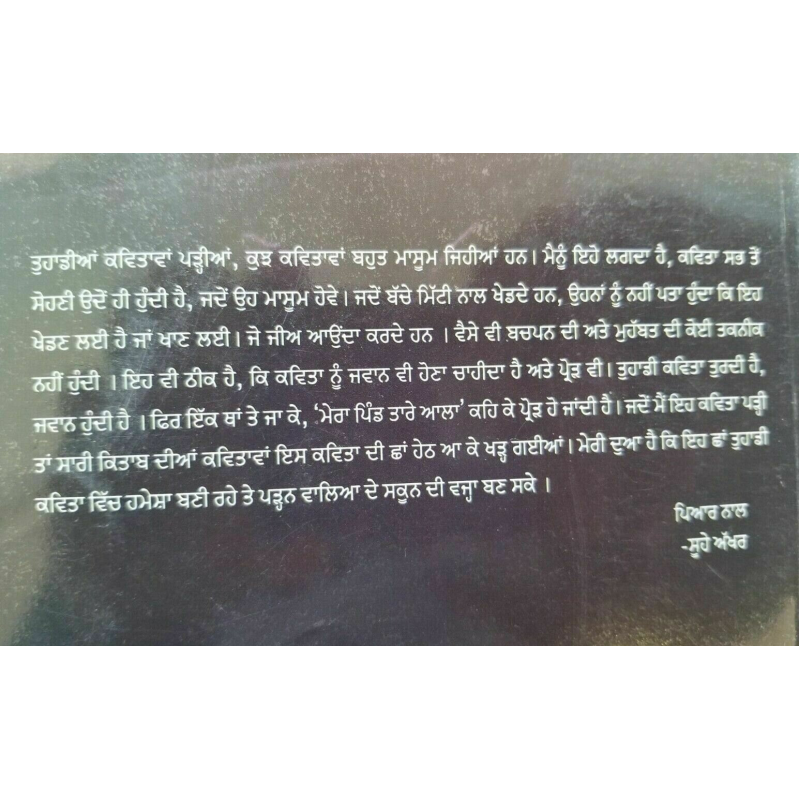 ਤੁਹਾਡੀਆਂ ਕਵਿਤਾਵਾਂ ਪੜ੍ਹੀਆਂ, ਕੁਝ ਕਵਿਤਾਵਾਂ ਬਹੁਤ ਮਾਸੂਮ ਜਿਹੀਆਂ ਹਨ। ਮੈਨੂੰ ਇਹੋ ਲਗਦਾ ਹੈ, ਕਵਿਤਾ ਸਭ ਤੋਂ
ਸੋਹਣੀ ਉਦੋਂ ਹੀ ਹੁੰਦੀ ਹੈ, ਜਦੋਂ ਉਹ ਮਾਸੂਮ ਹੋਵੇ। ਜਦੋਂ ਬੱਚੇ ਮਿੱਟੀ ਨਾਲ ਖੇਡਦੇ ਹਨ, ਉਹਨਾਂ ਨੂੰ ਨਹੀਂ ਪਤਾ ਹੁੰਦਾ ਕਿ ਇਹ
ਖੇਡਣ ਲਈ ਹੈ ਜਾਂ ਖਾਣ ਲਈ। ਜੋ ਜੀਅ ਆਉਂਦਾ ਕਰਦੇ ਹਨ । ਵੈਸੇ ਵੀ ਬਚਪਨ ਦੀ ਅਤੇ ਮੁਹੱਬਤ ਦੀ ਕੋਈ ਤਕਨੀਕ
ਨਹੀਂ ਹੁੰਦੀ । ਇਹ ਵੀ ਠੀਕ ਹੈ, ਕਿ ਕਵਿਤਾ ਨੂੰ ਜਵਾਨ ਵੀ ਹੋਣਾ ਚਾਹੀਦਾ ਹੈ ਅਤੇ ਪ੍ਰੋੜ ਵੀ। ਤੁਹਾਡੀ ਕਵਿਤਾ ਤੁਰਦੀ ਹੈ,
ਜਵਾਨ ਹੁੰਦੀ ਹੈ । ਫਿਰ ਇੱਕ ਥਾਂ ਤੇ ਜਾ ਕੇ, 'ਮੇਰਾ ਪਿੰਡ ਤਾਰੇ ਆਲਾ' ਕਹਿ ਕੇ ਪ੍ਰੋੜ ਹੋ ਜਾਂਦੀ ਹੈ। ਜਦੋਂ ਮੈਂ ਇਹ ਕਵਿਤਾ ਪੜ੍ਹੀ
ਤਾਂ ਸਾਰੀ ਕਿਤਾਬ ਦੀਆਂ ਕਵਿਤਾਵਾਂ ਇਸ ਕਵਿਤਾ ਦੀ ਛਾਂ ਹੇਠ ਆ ਕੇ ਖੜ੍ਹ ਗਈਆਂ। ਮੇਰੀ ਦੁਆ ਹੈ ਕਿ ਇਹ ਛਾਂ ਤੁਹਾਡੀ
ਕਵਿਤਾ ਵਿੱਚ ਹਮੇਸ਼ਾ ਬਣੀ ਰਹੇ ਤੇ ਪੜ੍ਹਨ ਵਾਲਿਆ ਦੇ ਸਕੂਨ ਦੀ ਵਜ੍ਹਾ ਬਣ ਸਕੇ ।
ਪਿਆਰ ਨਾਲ
-ਸੂਹੇ ਅੱਖਰ